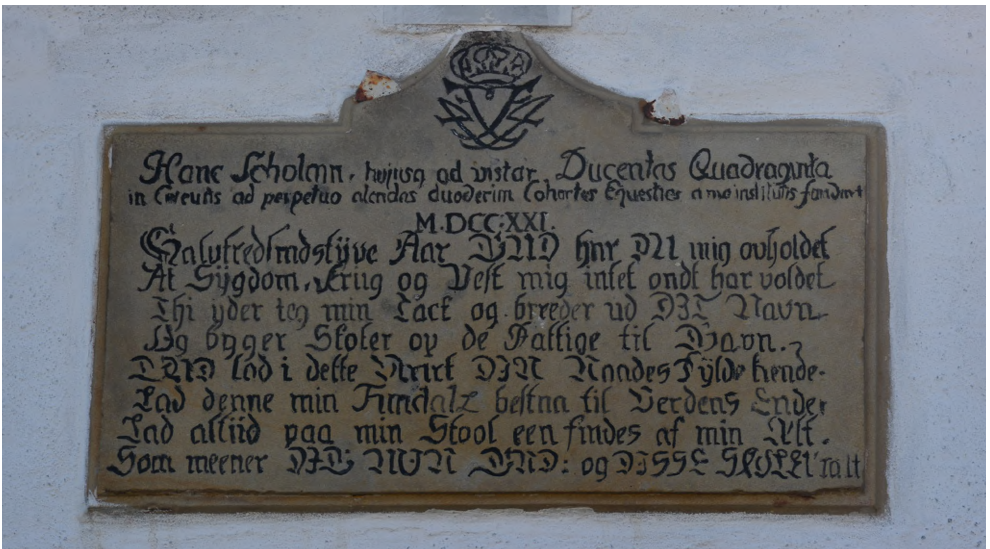 Hanc Scholam, hujusq ad instar, Ducentas Quadraginta
in Circulis ad perpetuo alendas duodecim Cohortes Equestres a me institutis fundavi
M.DCC.XXI.
Halvfredsindstÿve Aar GUD har DU mig ovholdet
At Sÿgdom, Kriig og Pest mig intet ondt har voldet
Thi yder ieg min Tack og breeder ud DIT Navn
Og bÿgger Skoler op de Fattige til Gavn.
GUD lad i dette Verck DIN Naades Fÿlde kiende.
Lad denne min Fundatz bestaa til Verdens Ende,
Lad altiid paa min Stool een findes af min Æt.
Som meener DIG: MIN GUD: og DISSE SKOLER ret